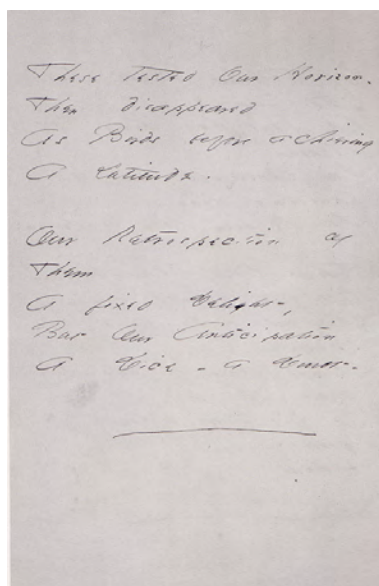 These tested Our Horizon -
Then disappeared
As Birds before achieving
A Latitude.
Our Retrospection of
Them
A fixed Delight,
But our Anticipation
A Dice - a Doubt -